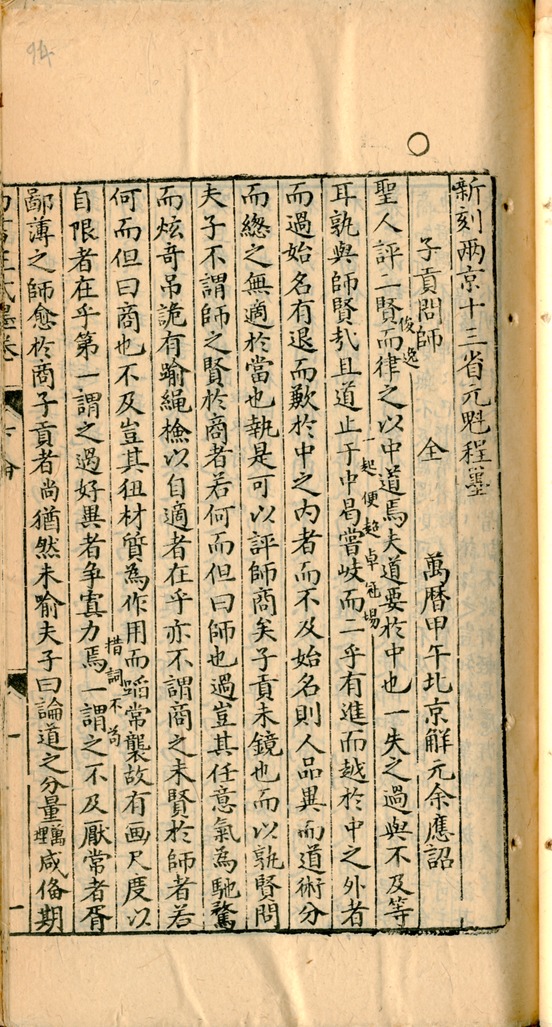 94
新刻兩京十三省元魁程墨
子貢問師 全 萬曆甲午北京解元余應詔
俊逸
聖人評二賢而律之以中道焉夫道要於中也一失之過與不及等
一起便超卓冠場
耳孰與師賢㢤且道止于中曷嘗岐而二乎有進而越於中之外者
而過始名有退而歉於中之內者而不及始名則人品異而道術分
而緫之無適於當也執是可以評師商矣子貢未鏡也而以孰賢問
夫子不謂師之賢於商者若何而但曰師也過豈其任意氣為馳騖
而炫奇吊詭有踰繩檢以自適者在乎亦不謂商之未賢於師者若
何而但曰商也不及豈其狃材質為作用而蹈常襲故有画尺度以
措詞不苟
自限者在乎第一謂之過好異者争寘力焉一謂之不及厭常者胥
鄙薄之師愈於商子貢者尚猶然未喻夫子曰論道之分量咸俻期